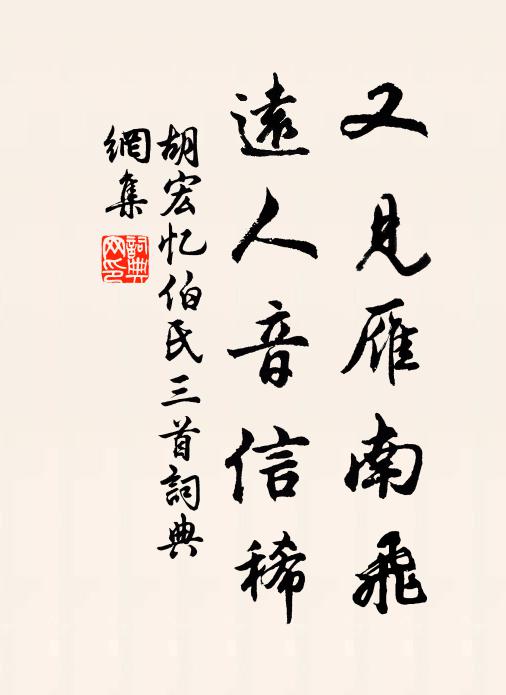 又見雁南飛
遠人音信稀
胡宏忆伯氏三首詞典
網集
詞典
网印